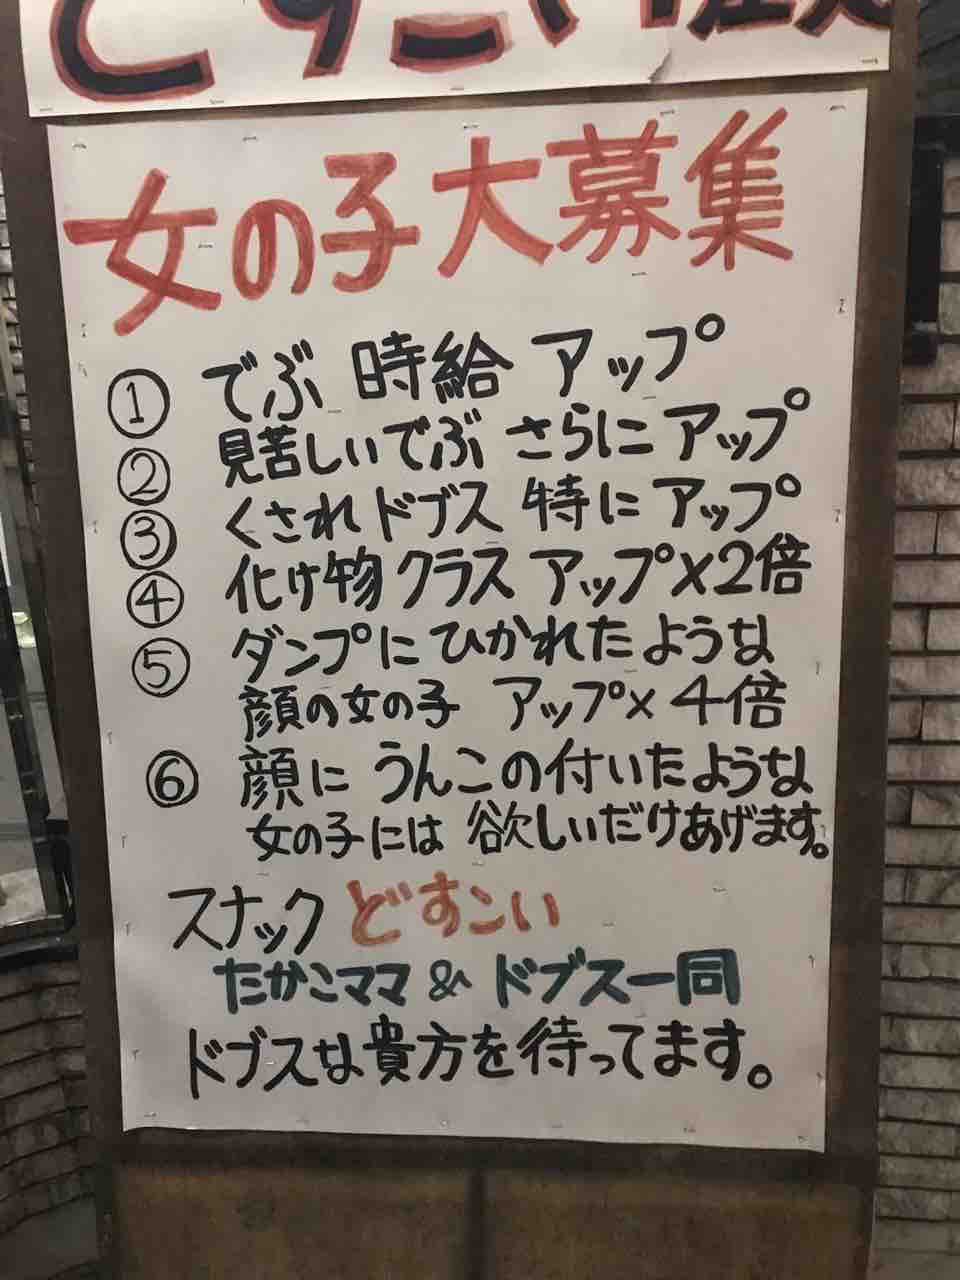 どすこい
女の子大募集
① でぶ 時給 アップ
② 見苦しいでぶ さらに アップ
③ くされドブス 特に アップ
④ 化け物 クラス アップ×2倍
⑤ ダンプに ひかれたような
顔の女の子 アップ×4倍
⑥ 顔に うんこの付いたような
女の子には 欲しいだけあげます。
スナック どすこい
たかこママ & ドブス一同
ドブスな貴方を待ってます。